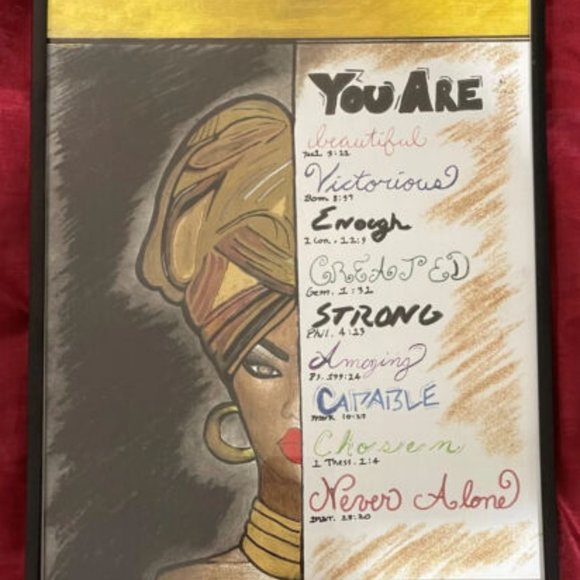 YOU ARE
beautiful
Victorious
Rom 8:37
Enough
2 Cor. 12:9
CREATED
Gen. 1:31
STRONG
Phil. 4:13
Amazing
CAPABLE
Mark 10:27
Chosen
1 Thess. 1:4
Never Alone
Mat. 28:20